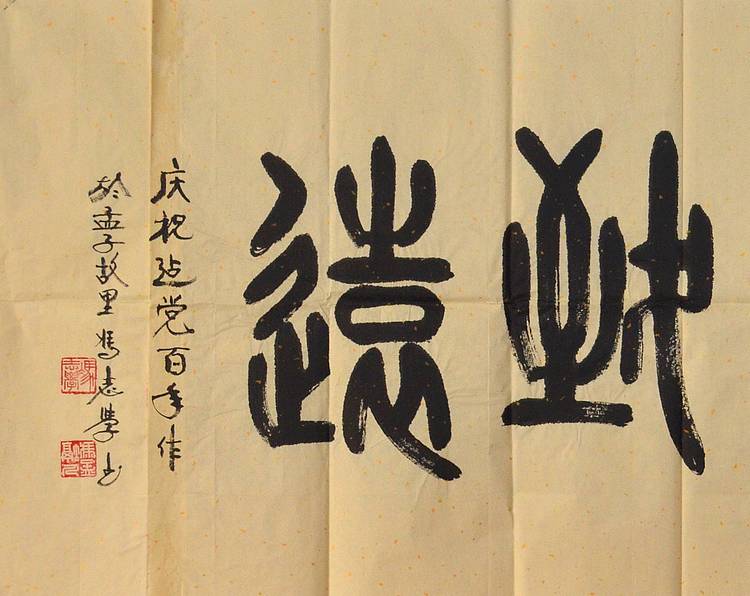 致遠
庆祝建党百年作
於孟子故里冯志學书